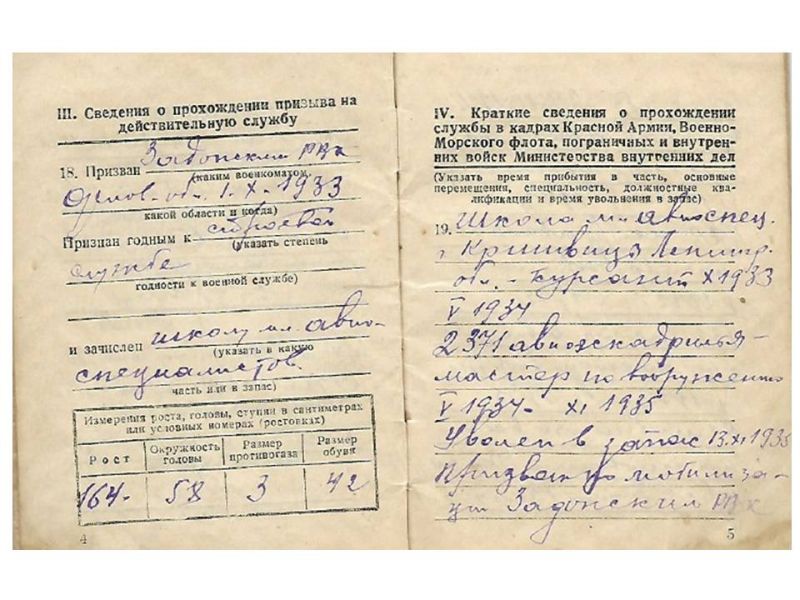 III. Сведения о прохождении призыва на
действительную службу
18. Призван Задонским РВК
(каким военкоматом,
Орлов. обл. 1.X.1933
какой области и когда)
Признан годным к строевой
(указать степень
службе
годности к военной службе)
и зачислен школу мл. авиа-
(указать в какую
специалистов.
часть или в запас)
Измерения роста, головы, ступни в сантиметрах
или условных номерах (ростовках)
Рост Окружность головы Размер противогаза Размер обуви
164- 58 3 42
4
IV. Краткие сведения о прохождении
службы в кадрах Красной Армии, Военно-
Морского флота, пограничных и внутрен-
них войск Министерства внутренних дел
(Указать время прибытия в часть, основные
перемещения, специальность, должностные ква-
лификации и время увольнения в запас)
19. Школа мл. авиоспец.
Ленингр.
обл. - Курсант X 1933
V 1934
2371 авиоэскадрилья -
мастер по вооружению
V 1934 - XI 1935
Уволен в запас 13.XI 1935
Призван по мобилиза-
ции Задонским РВК
5